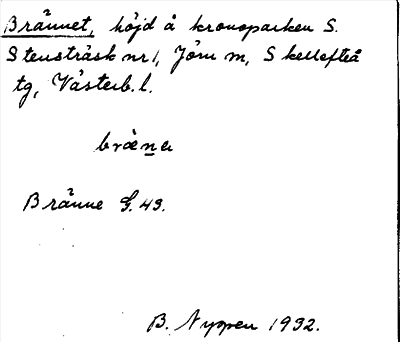 Brännet, höjd å kronoparken S.
Stensträsk nr 1, Jörn sn, Skellefteå
tg, Västerb. l.
brä̀na
Bränne G. 43.
B. Nyman 1932.